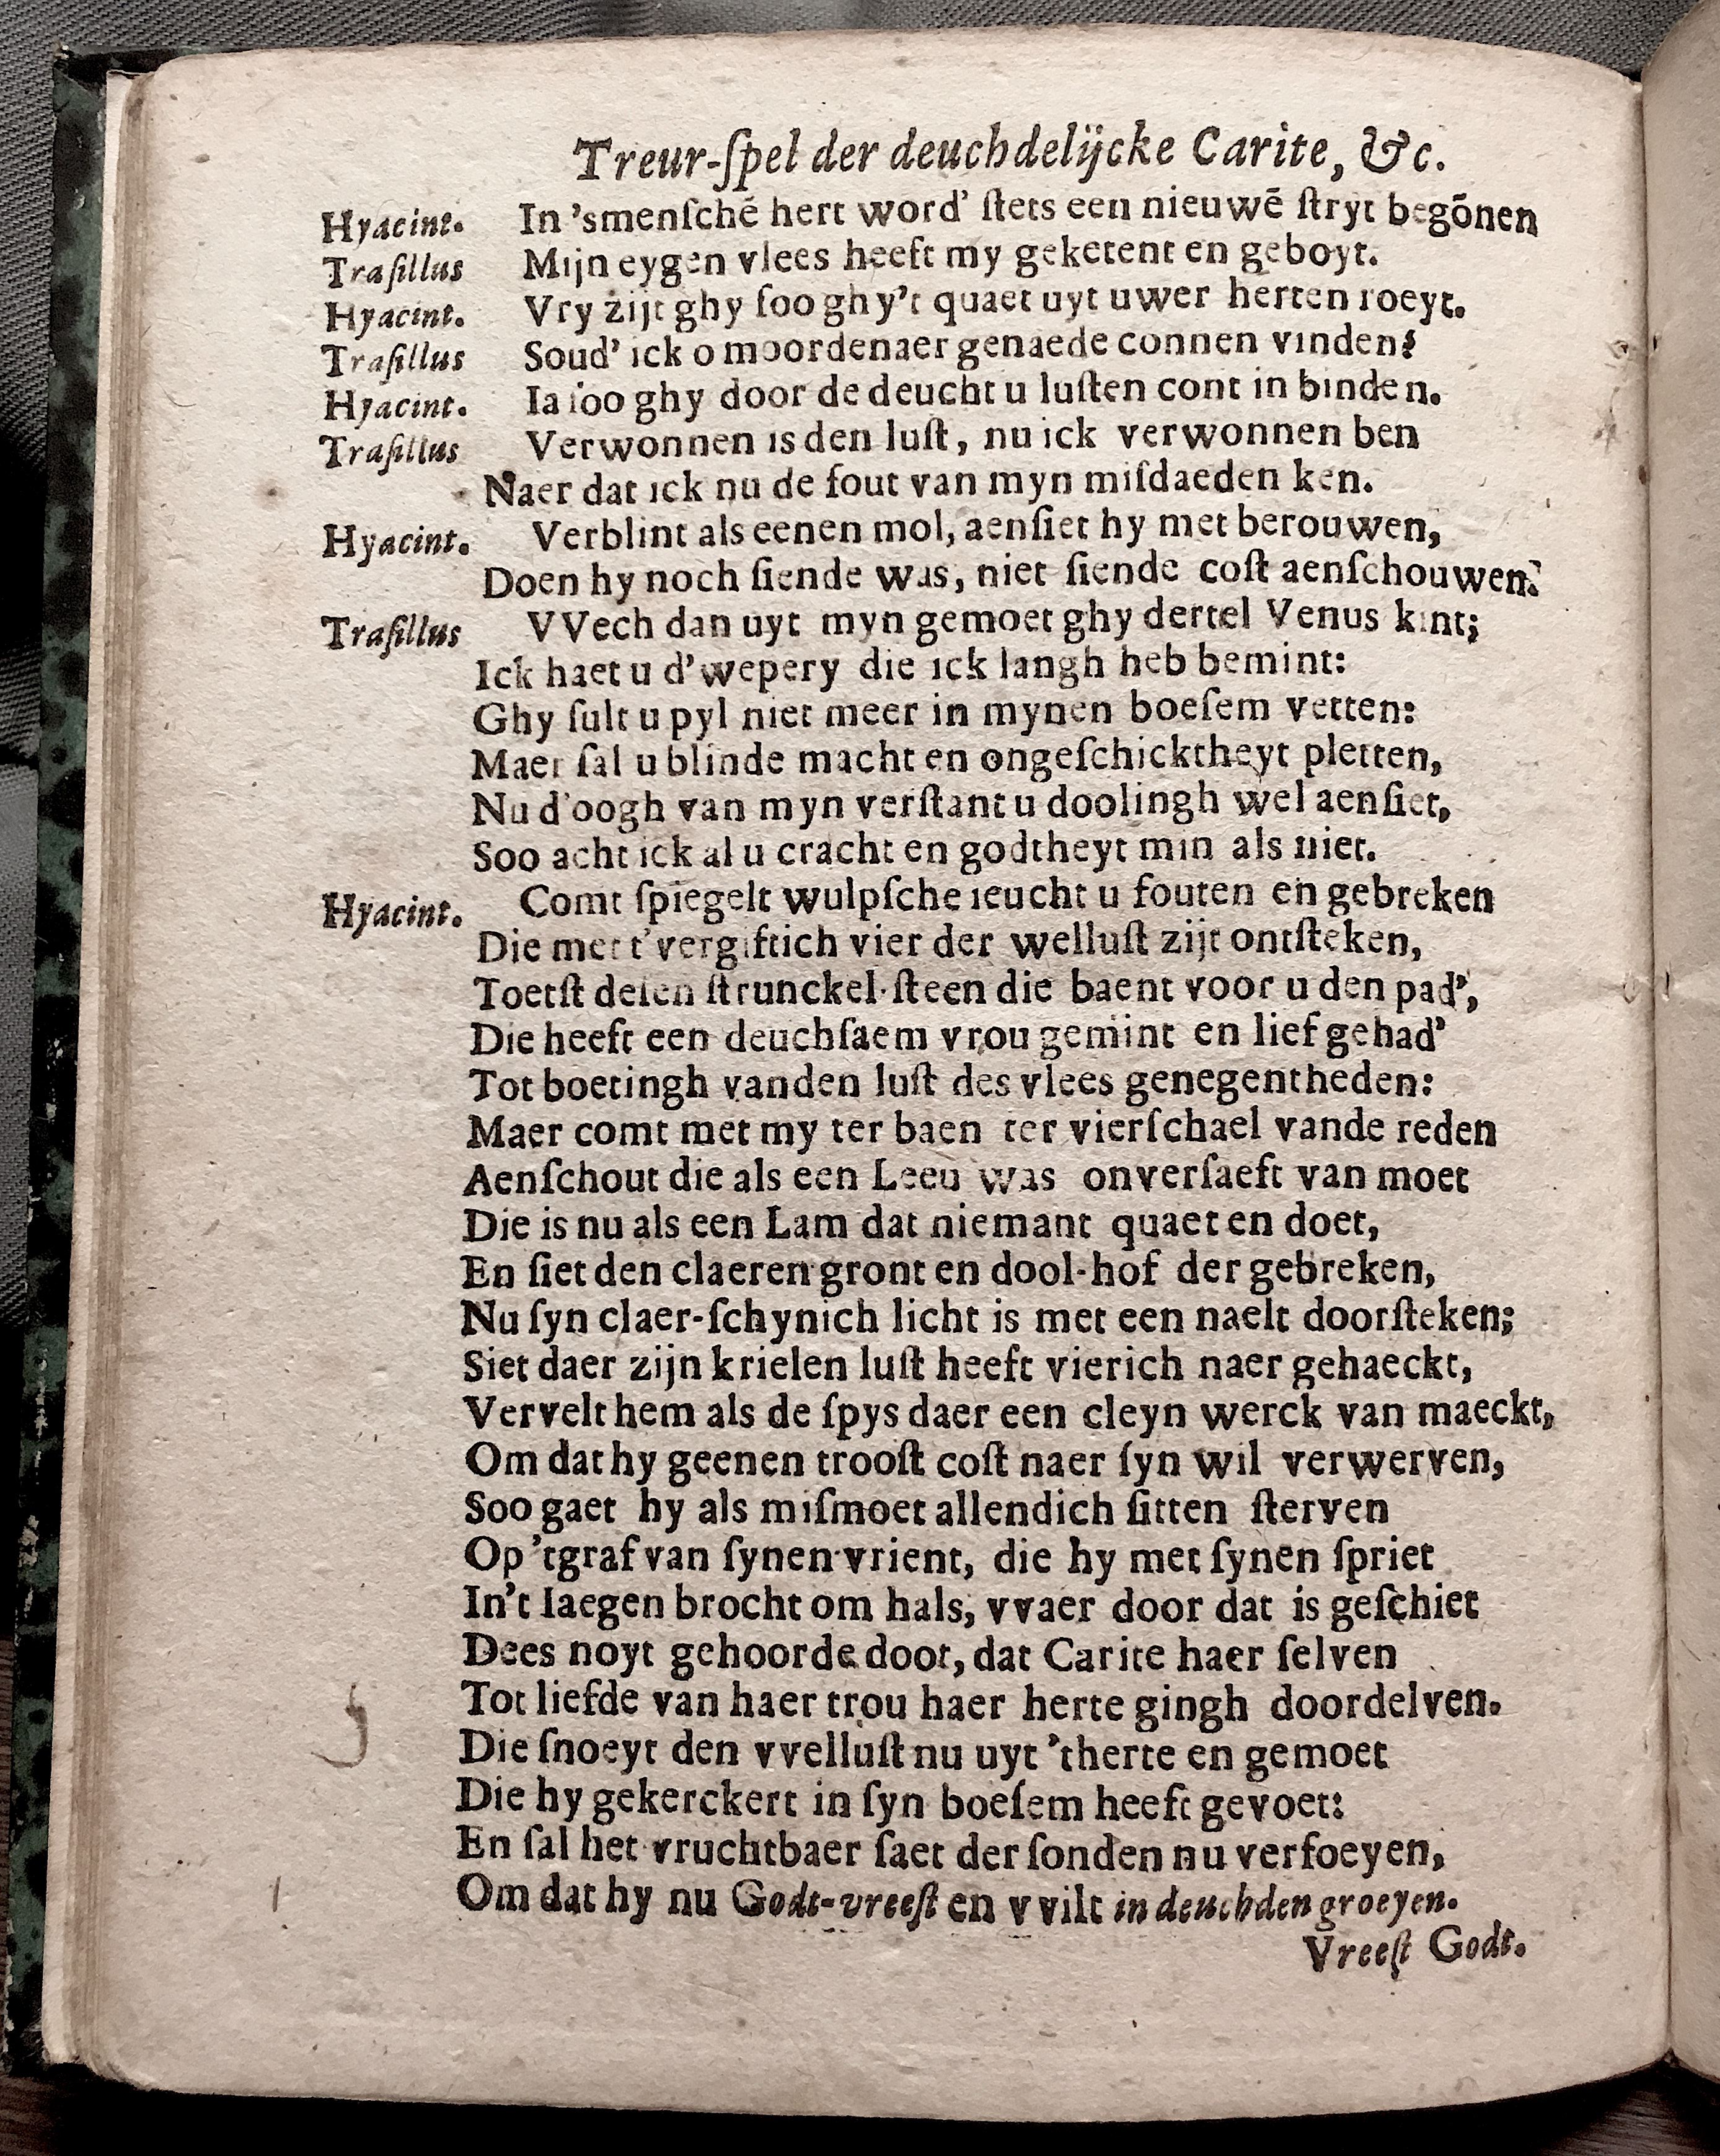 Treur-ſpel der deuchdelijcke Carite, &c.
Hyacint. In 'smenſchē hert word' ſtets een nieuwē ſtryt begōnen
Traſillus Mijn eygen vlees heeft my geketent en geboyt.
Hyacint. Vry zijt ghy ſoo ghy't quaet uyt uwer herten roeyt.
Traſillus Soud' ick o moordenaer genaede connen vinden?
Hyacint. Ia ſoo ghy door de deucht u luſten cont in binden.
Traſillus Verwonnen is den luſt, nu ick verwonnen ben
Naer dat ick nu de fout van myn miſdaeden ken.
Hyacint. Verblint als eenen mol, aenſiet hy met berouwen,
Doen hy noch ſiende was, niet ſiende coſt aenſchouwen.
Traſillus VVech dan uyt myn gemoet ghy dertel Venus kint;
Ick haet u d'wepery die ick langh heb bemint:
Ghy ſult u pyl niet meer in mynen boeſem vetten:
Maer ſal u blinde macht en ongeſchicktheyt pletten,
Nu d'oogh van myn verſtant u doolingh wel aenſiet,
Soo acht ick al u cracht en godtheyt min als niet.
Hyacint. Comt ſpiegelt wulpſche ieucht u fouten en gebreken
Die met t'vergiftich vier der welluſt zijt ontſteken,
Toetſt deſen ſtrunckel-ſteen die baent voor u den pad',
Die heeft een deuchſaem vrou gemint en lief gehad'
Tot boetingh vanden luſt des vlees genegentheden:
Maer comt met my ter baen ter vierſchael vande reden
Aenſchout die als een Leeu was onverſaeft van moet
Die is nu als een Lam dat niemant quaet en doet,
En ſiet den claeren gront en dool-hof der gebreken,
Nu ſyn claer-ſchynich licht is met een naelt doorſteken;
Siet daer zijn krielen luſt heeft vierich naer gehaeckt,
Vervelt hem als de ſpys daer een cleyn werck van maeckt,
Om dat hy geenen trooſt coſt naer ſyn wil verwerven,
Soo gaet hy als miſmoet allendich ſitten ſterven
Op 'tgraf van ſynen vrient, die hy met ſynen ſpriet
In't Iaegen brocht om hals, vvaer door dat is geſchiet
Dees noyt gehoorde doot, dat Carite haer ſelven
Tot liefde van haer trou haer herte gingh doordelven.
Die ſnoeyt den vvelluſt nu uyt 'therte en gemoet
Die hy gekerckert in ſyn boeſem heeft gevoet:
En ſal het vruchtbaer ſaet der ſonden nu verfoeyen,
Om dat hy nu Godt-vreeſt en vvilt in deuchden groeyen.
Vreeſt Godt.